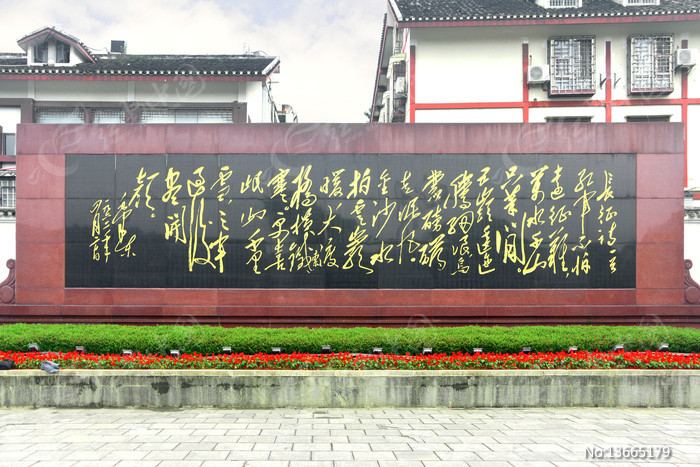 长征诗一首
红军不怕
远征难
万水千山
只等闲
五岭逶迤
腾细浪乌
蒙磅礴
走泥丸
金沙水
拍云崖
暖大渡
桥横铁索
寒更喜
岷山千里
雪三军
过后
尽开
颜
毛泽东
No:13665179